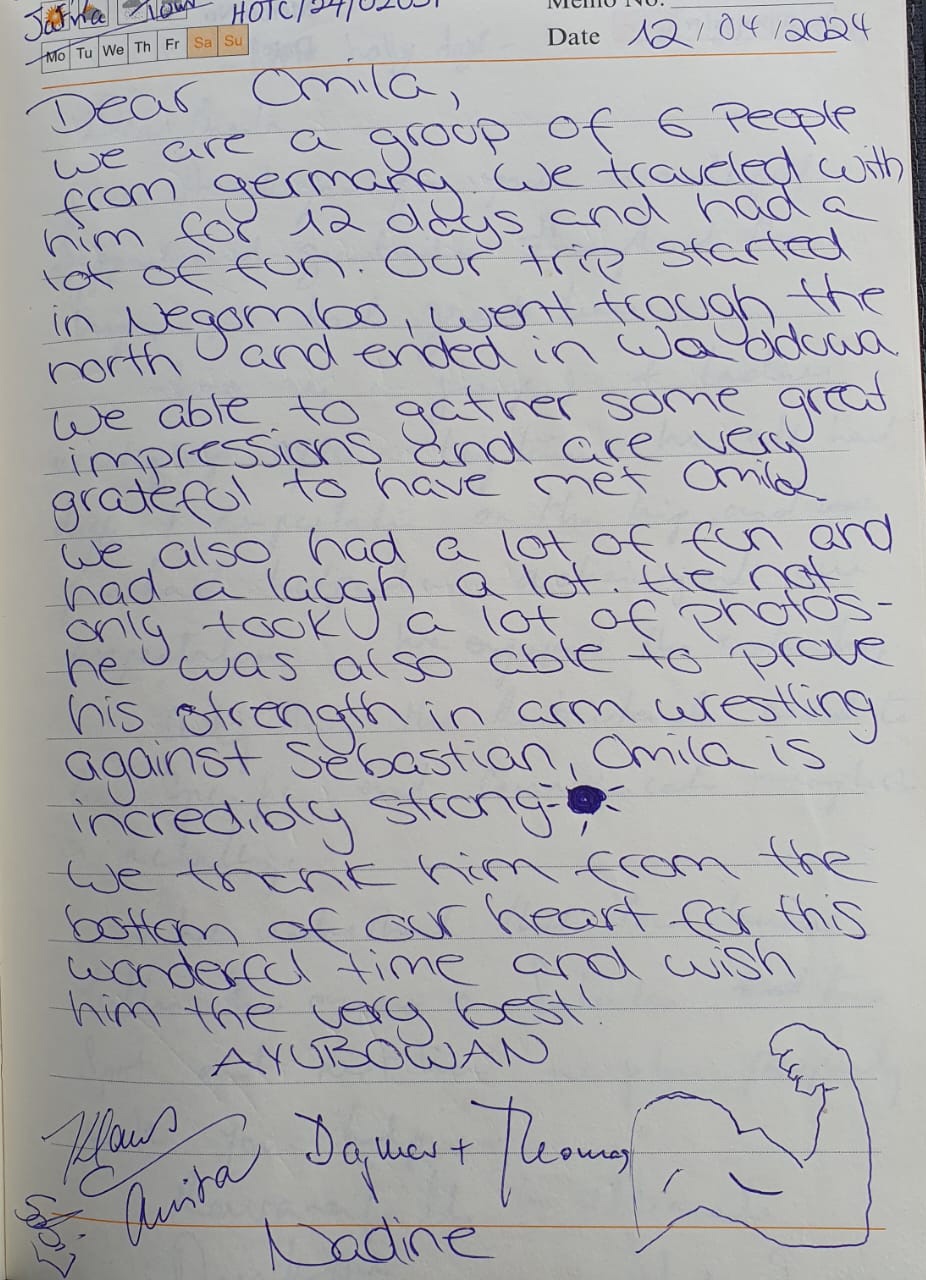 Jafna Tour HOTC/24/0205
Memo No.
Mo Tu We Th Fr Sa Su
Date 12/04/2024
Dear Omila,
we are a group of 6 People
from germany. We traveled with
him for 12 days and had a
lot of fun. Our trip started
in Negombo, went trough the
north and ended in Wadduwa.
We able to gather some great
impressions and are very
grateful to have met Omila
We also had a lot of fun and
had a laugh a lot. He not
only took a lot of photos-
he was also able to prove
his strength in arm wrestling
against Sebastian, Omila is
incredibly strong
We thank him from the
bottom of our heart for this
wonderful time and wish
him the very best!
AYUBOWAN
Klaus
Anita
Dagmar + Thomas
Nadine